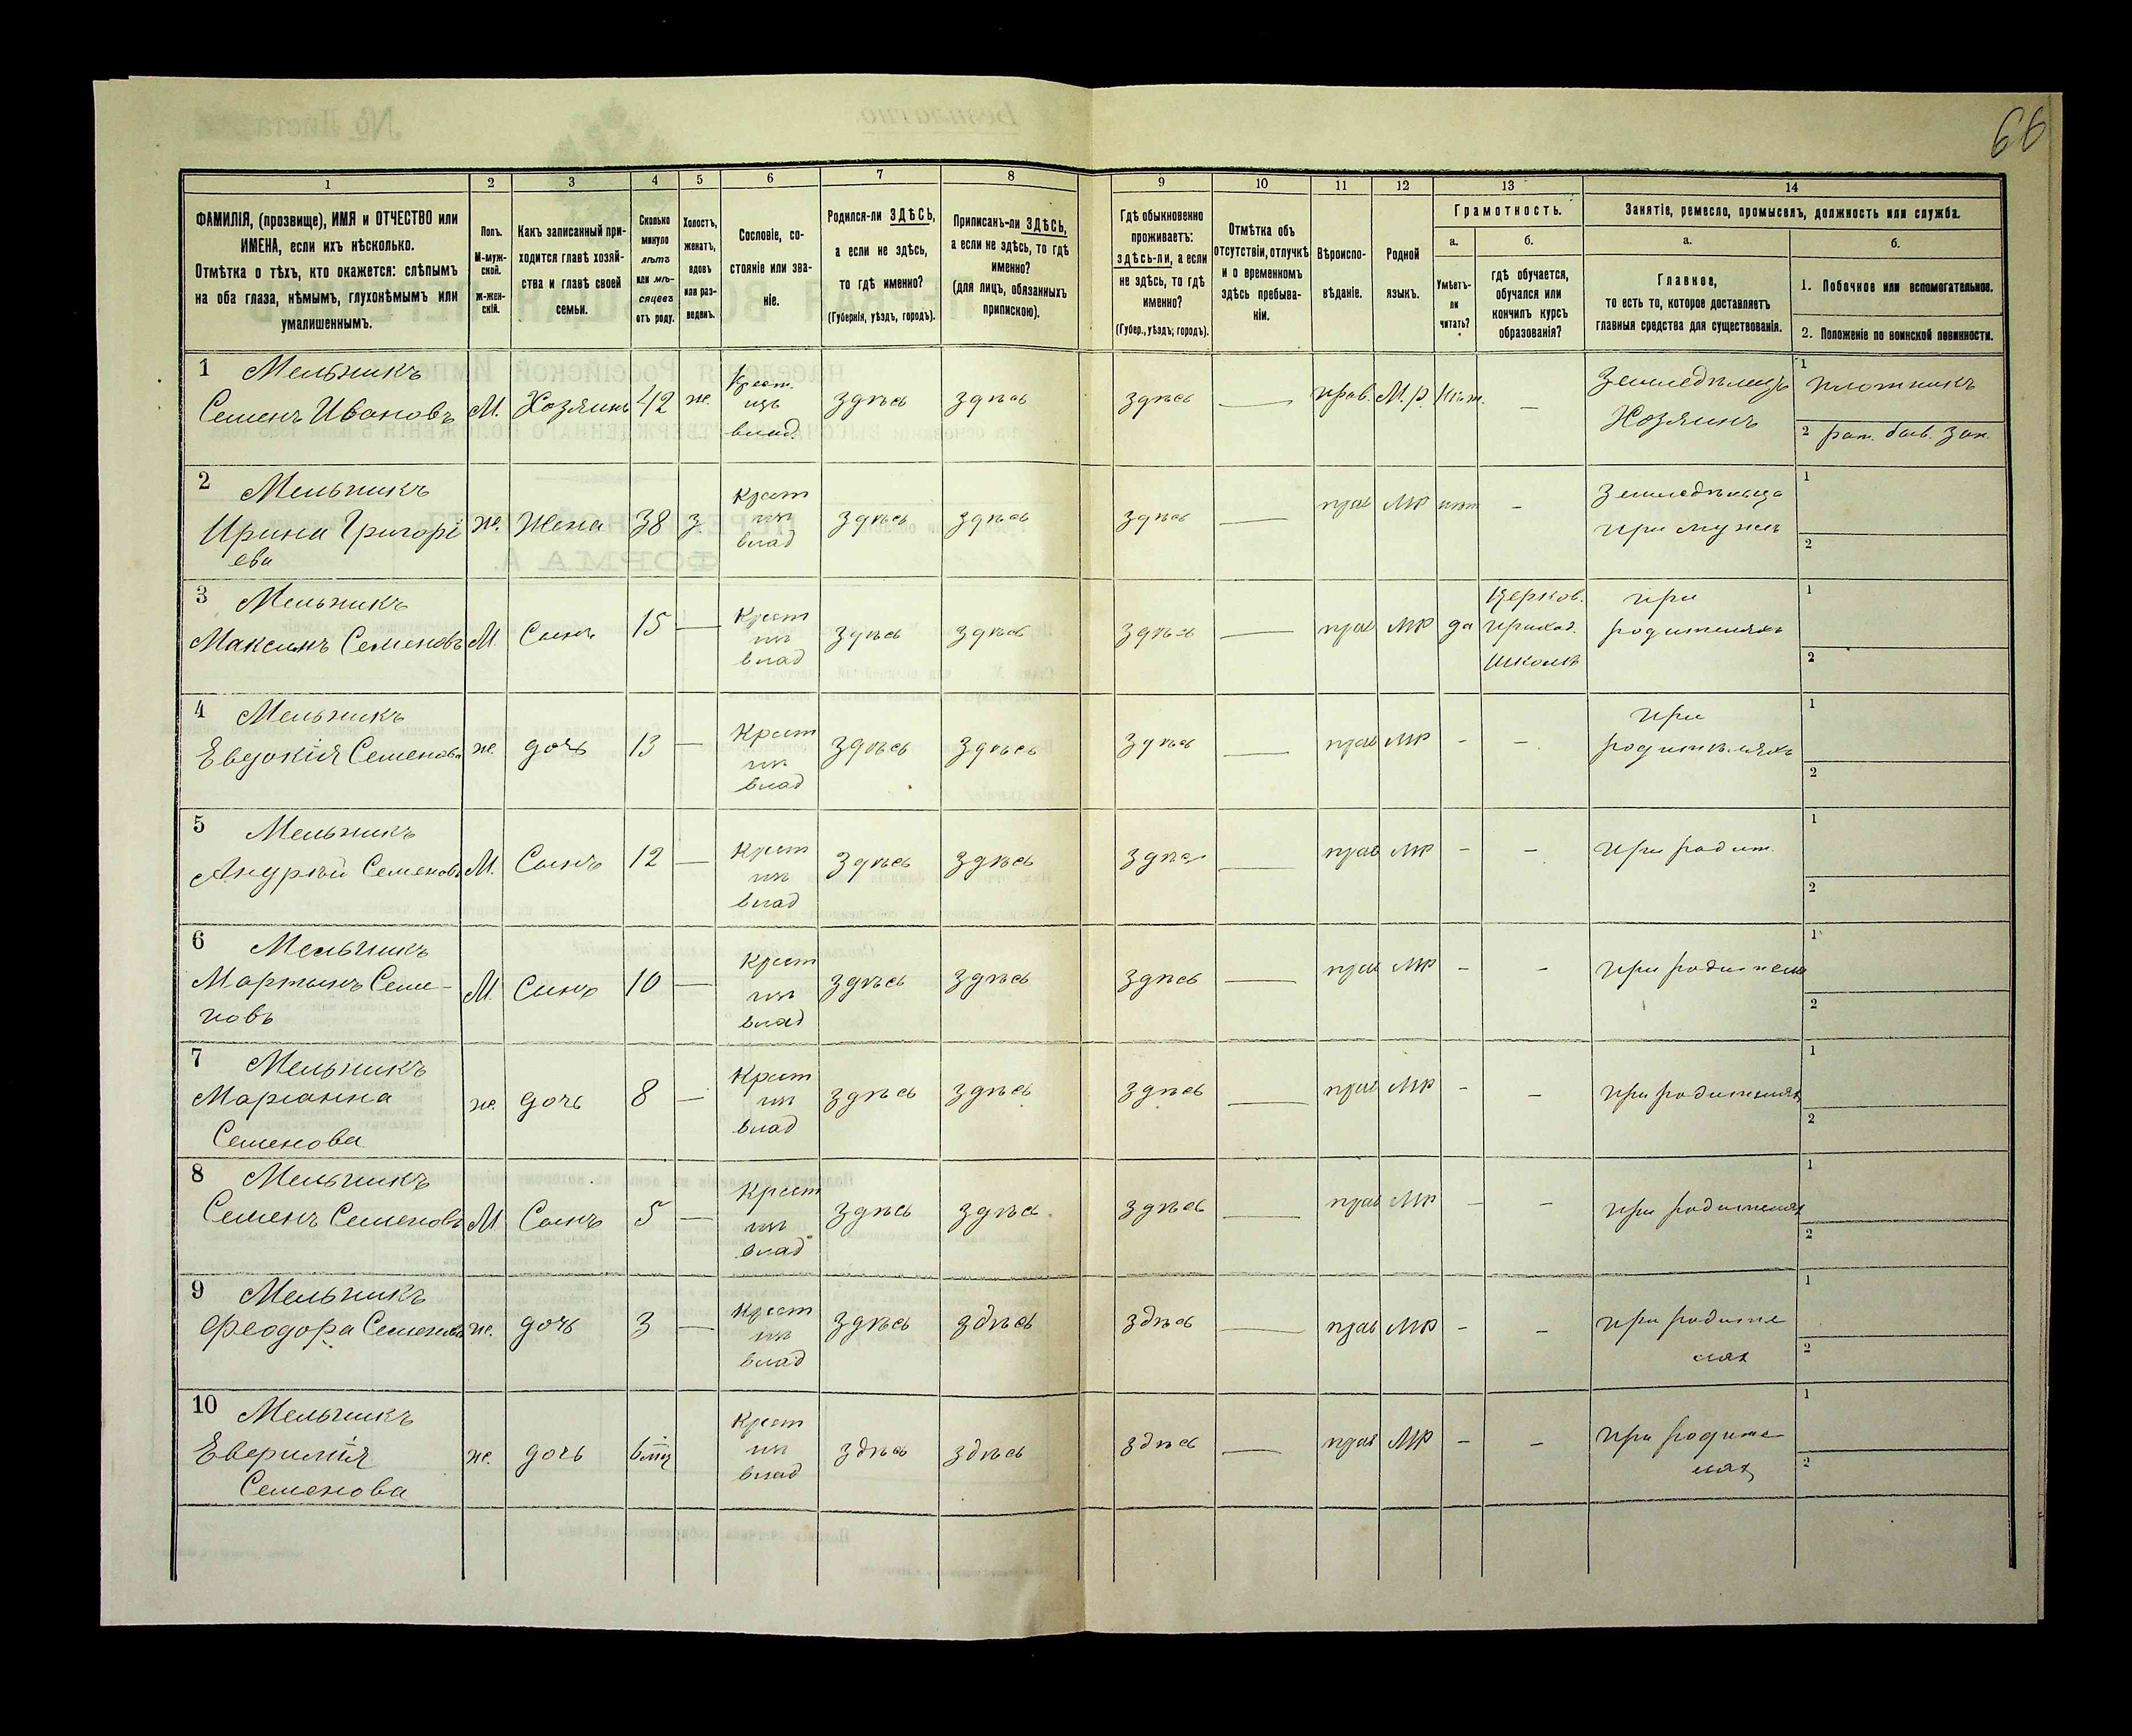 66
1 2 3 4 5 6 7 8 9 10 11 12 13 14
ФАМИЛІЯ, (прозвище), ИМЯ и ОТЧЕСТВО или
ИМЕНА, если ихъ нѣсколько.
Отмѣтка о тѣхъ, кто окажется: слѣпымъ
на оба глаза, нѣмымъ, глухонѣмымъ или
умалишеннымъ.
Полъ.
М-муж-
ской.
Ж-жен-
скій.
Какъ записанный при-
ходится главѣ хозяй-
ства и главѣ своей
семьи.
Сколько
минуло
лѣтъ
или мѣ-
сяцевъ
отъ роду.
Холостъ,
женатъ,
вдовъ
или раз-
веденъ.
Сословіе, со-
стояніе или зва-
ніе.
Родился-ли ЗДѢСЬ,
а если не здѣсь,
то гдѣ именно?
(Губернія, уѣздъ, городъ).
Приписанъ-ли ЗДѢСЬ,
а если не здѣсь, то гдѣ
именно?
(для лицъ, обязанныхъ
припискою).
Гдѣ обыкновенно
проживаетъ:
здѣсь-ли, а если
не здѣсь, то гдѣ
именно?
(Губер., уѣздъ, городъ).
Отмѣтка объ
отсутствіи, отлучкѣ
и о временномъ
здѣсь пребыва-
ніи.
Вѣроиспо-
вѣданіе.
Родной
языкъ.
Грамотность.
а.
Умѣетъ-
ли
читать?
б.
гдѣ обучается,
обучался или
кончилъ курсъ
образованія?
Занятіе, ремесло, промыселъ, должность или служба.
а.
Главное,
то есть то, которое доставляетъ
главныя средства для существованія.
б.
1. Побочное или вспомогательное.
2. Положеніе по воинской повинности.
1 Мельникъ
Семенъ Ивановъ М. Хозяинъ 42 ж. Крест. изъ влад. здѣсь здѣсь здѣсь — прав. М.р. нѣт. — Земледѣлецъ Хозяинъ 1 плотникъ
2 рат. зап.
2 Мельникъ
Ирина Григорі
ева ж. Жена 38 з. Крест изъ влад здѣсь здѣсь здѣсь — прав МР нѣт - Земледѣлица при мужѣ 1 2
3 Мельникъ
Максимъ Семеновъ М. Сынъ 15 — Крест изъ влад здѣсь здѣсь здѣсь — прав МР да Церков. приход. школѣ при родителяхъ 1 2
4 Мельникъ
Евдокія Семенова ж. дочь 13 — Крест изъ влад здѣсь здѣсь здѣсь — прав МР - - при родителяхъ 1 2
5 Мельникъ
Андрѣй Семеновъ М. Сынъ 12 — Крест изъ влад здѣсь здѣсь здѣсь — прав МР - - при родит. 1 2
6 Мельникъ
Мартынъ Семе-
новъ М. Сынъ 10 — Крест изъ влад здѣсь здѣсь здѣсь — прав МР - - при родителя 1 2
7 Мельникъ
Маріанна
Семенова ж. дочь 8 — Крест изъ влад здѣсь здѣсь здѣсь — прав МР - - при родителях 1 2
8 Мельникъ
Семенъ Семеновъ М Сынъ 5 — Крест изъ влад здѣсь здѣсь здѣсь — прав МР - - при родителях 1 2
9 Мельникъ
Феодора Семенова ж. дочь 3 — Крест изъ влад здѣсь здѣсь здѣсь — прав МР - - при родите
лях 1 2
10 Мельникъ
Еверимія
Семенова ж. дочь 6 мц Крест изъ влад здѣсь здѣсь здѣсь — прав МР - - при родите
лях 1 2